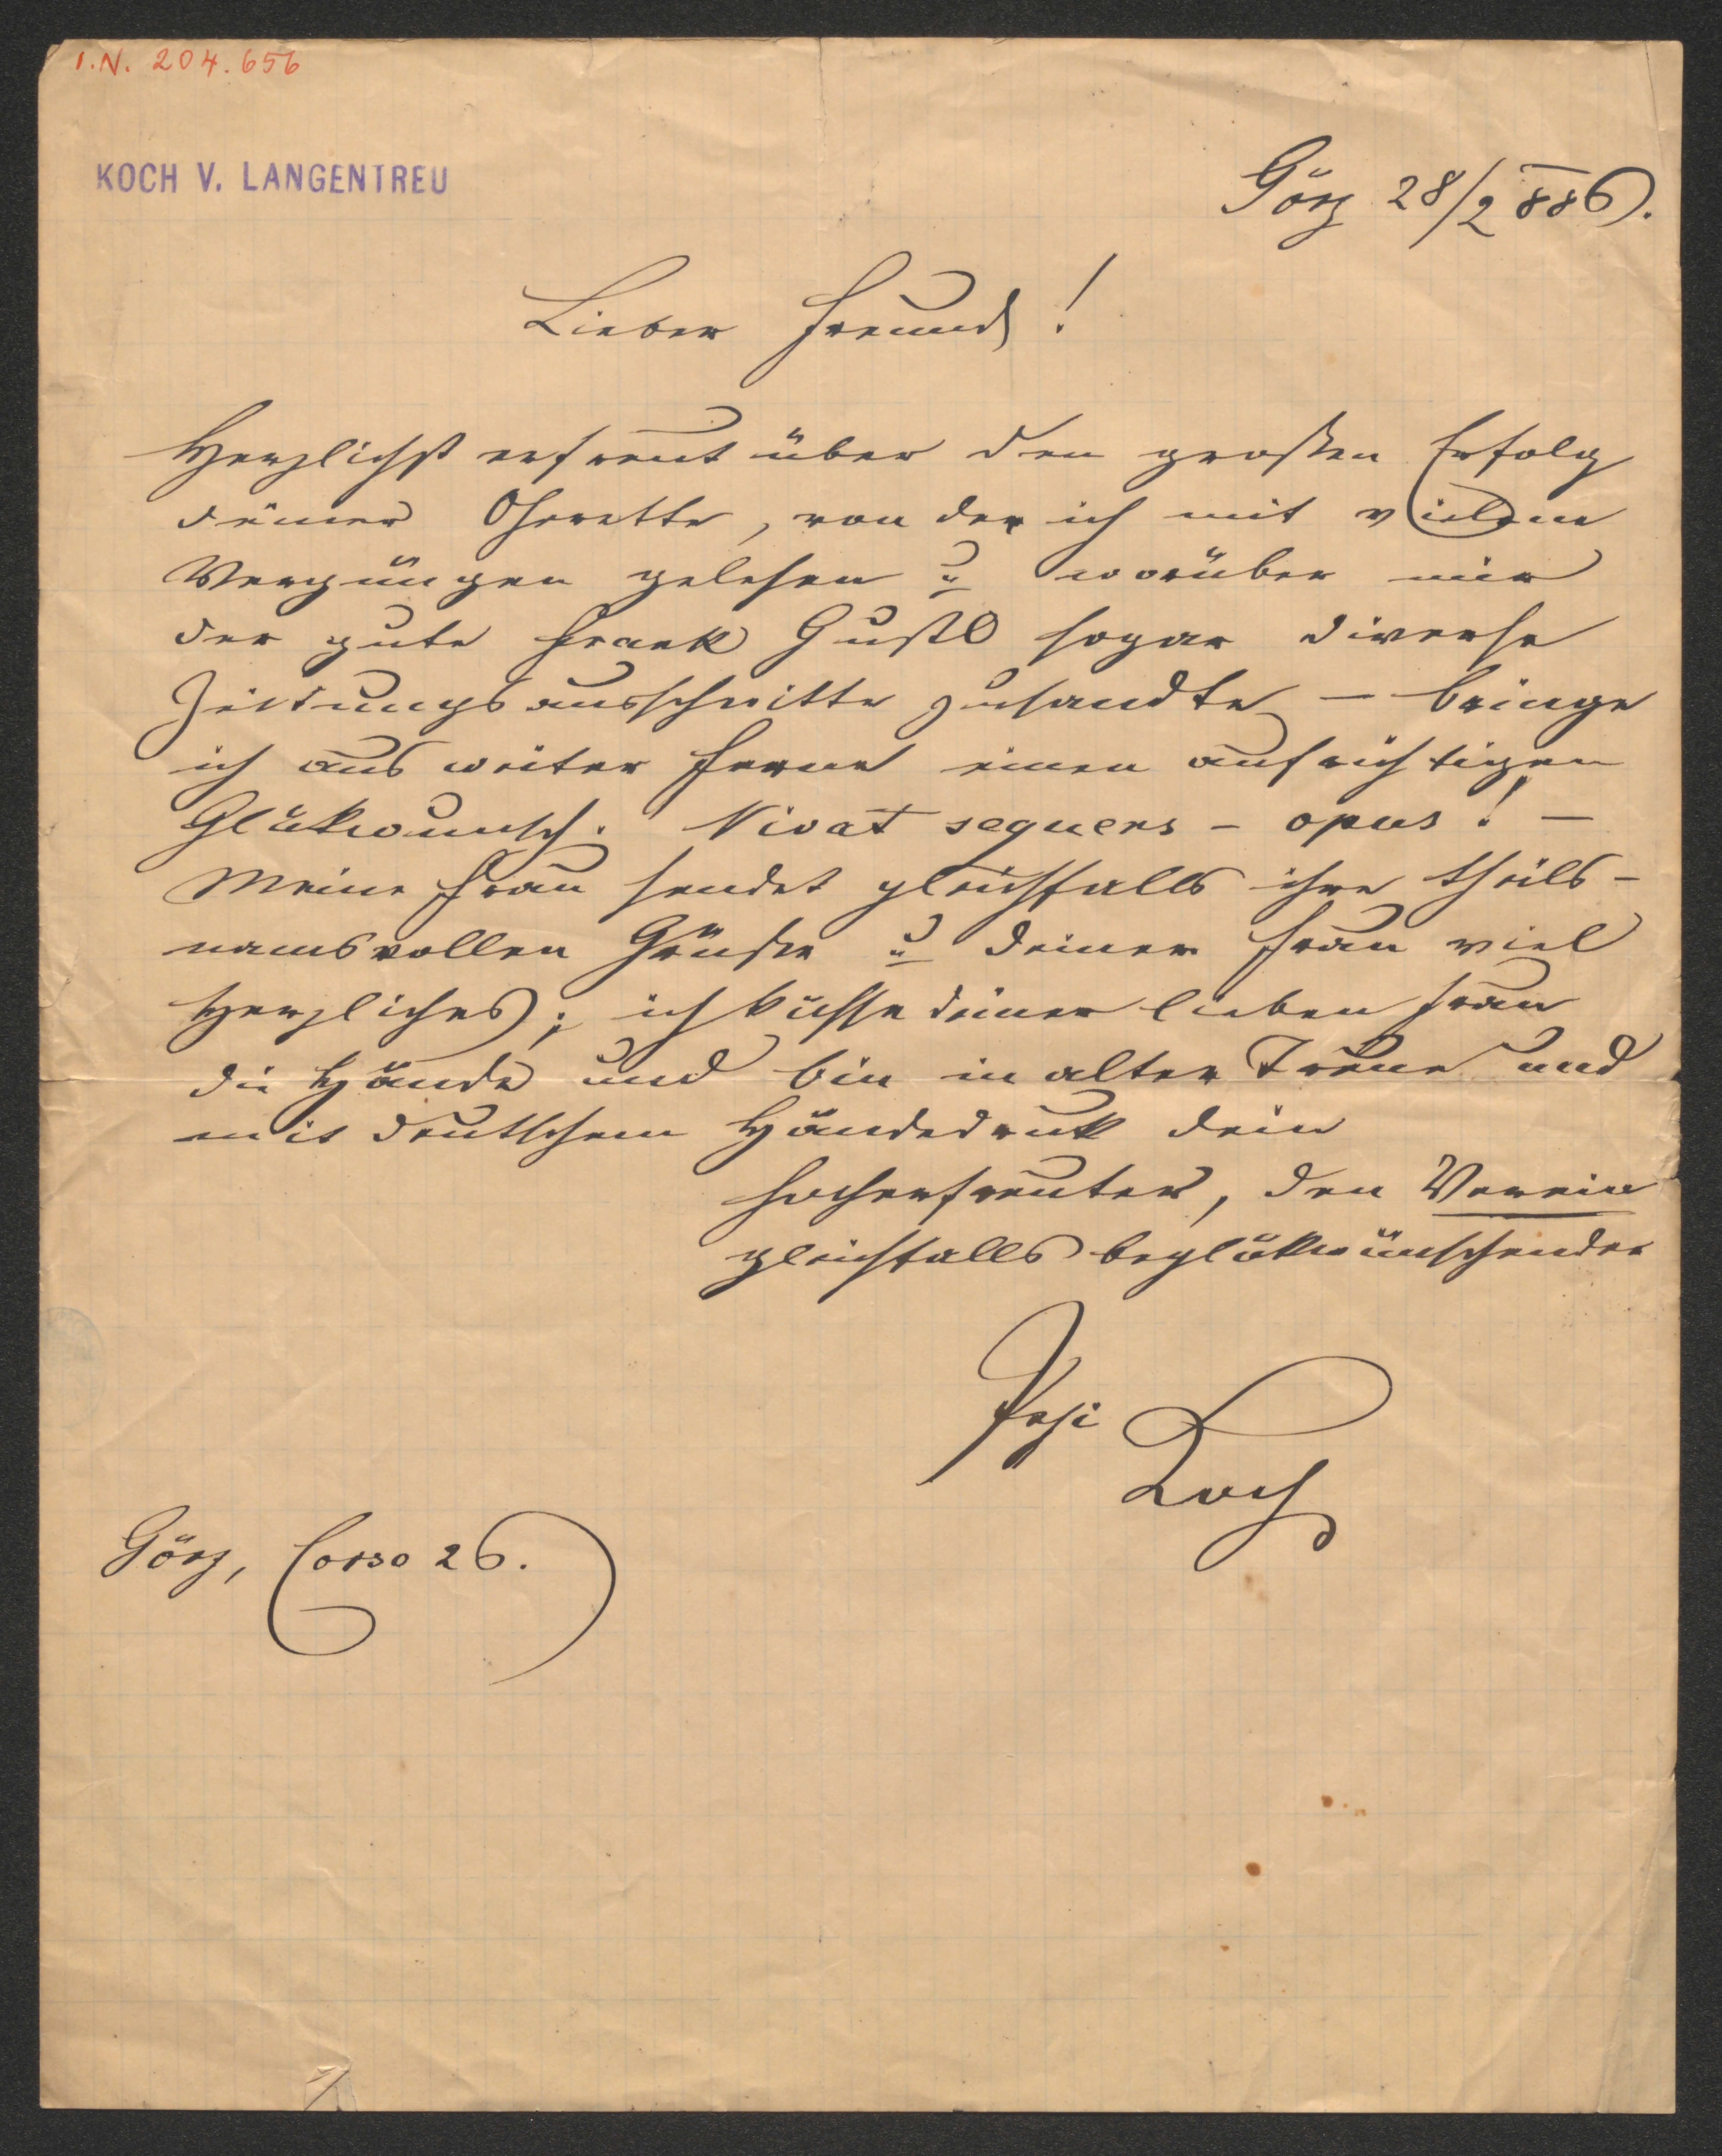 I.N. 204.656
KOCH V. LANGENTREU
Görz 28/2 886.
Lieber Freund!
Herzlichst erfreut über den großen Erfolg
deiner Operette, von der ich mit vielem
Vergnügen gelesen u worüber mir
der gute Frank Gustl sogar diverse
Zeitungsausschnitte zusandte – bringe
ich aus weiter Ferne einen aufrichtigen
Glükwunsch. Vivat sequens – opus! –
Meine Frau sendet gleichfalls ihre theils-
namsvollen Grüße u deiner Frau viel
Herzliches; ich küsse deiner lieben Frau
die Hände und bin in alter Treue und
mit deutschem Händedruk dein
hocherfreuter, den Verein
gleichfalls beglükwünschender
Pepi
Koch
Görz, Corso 26.